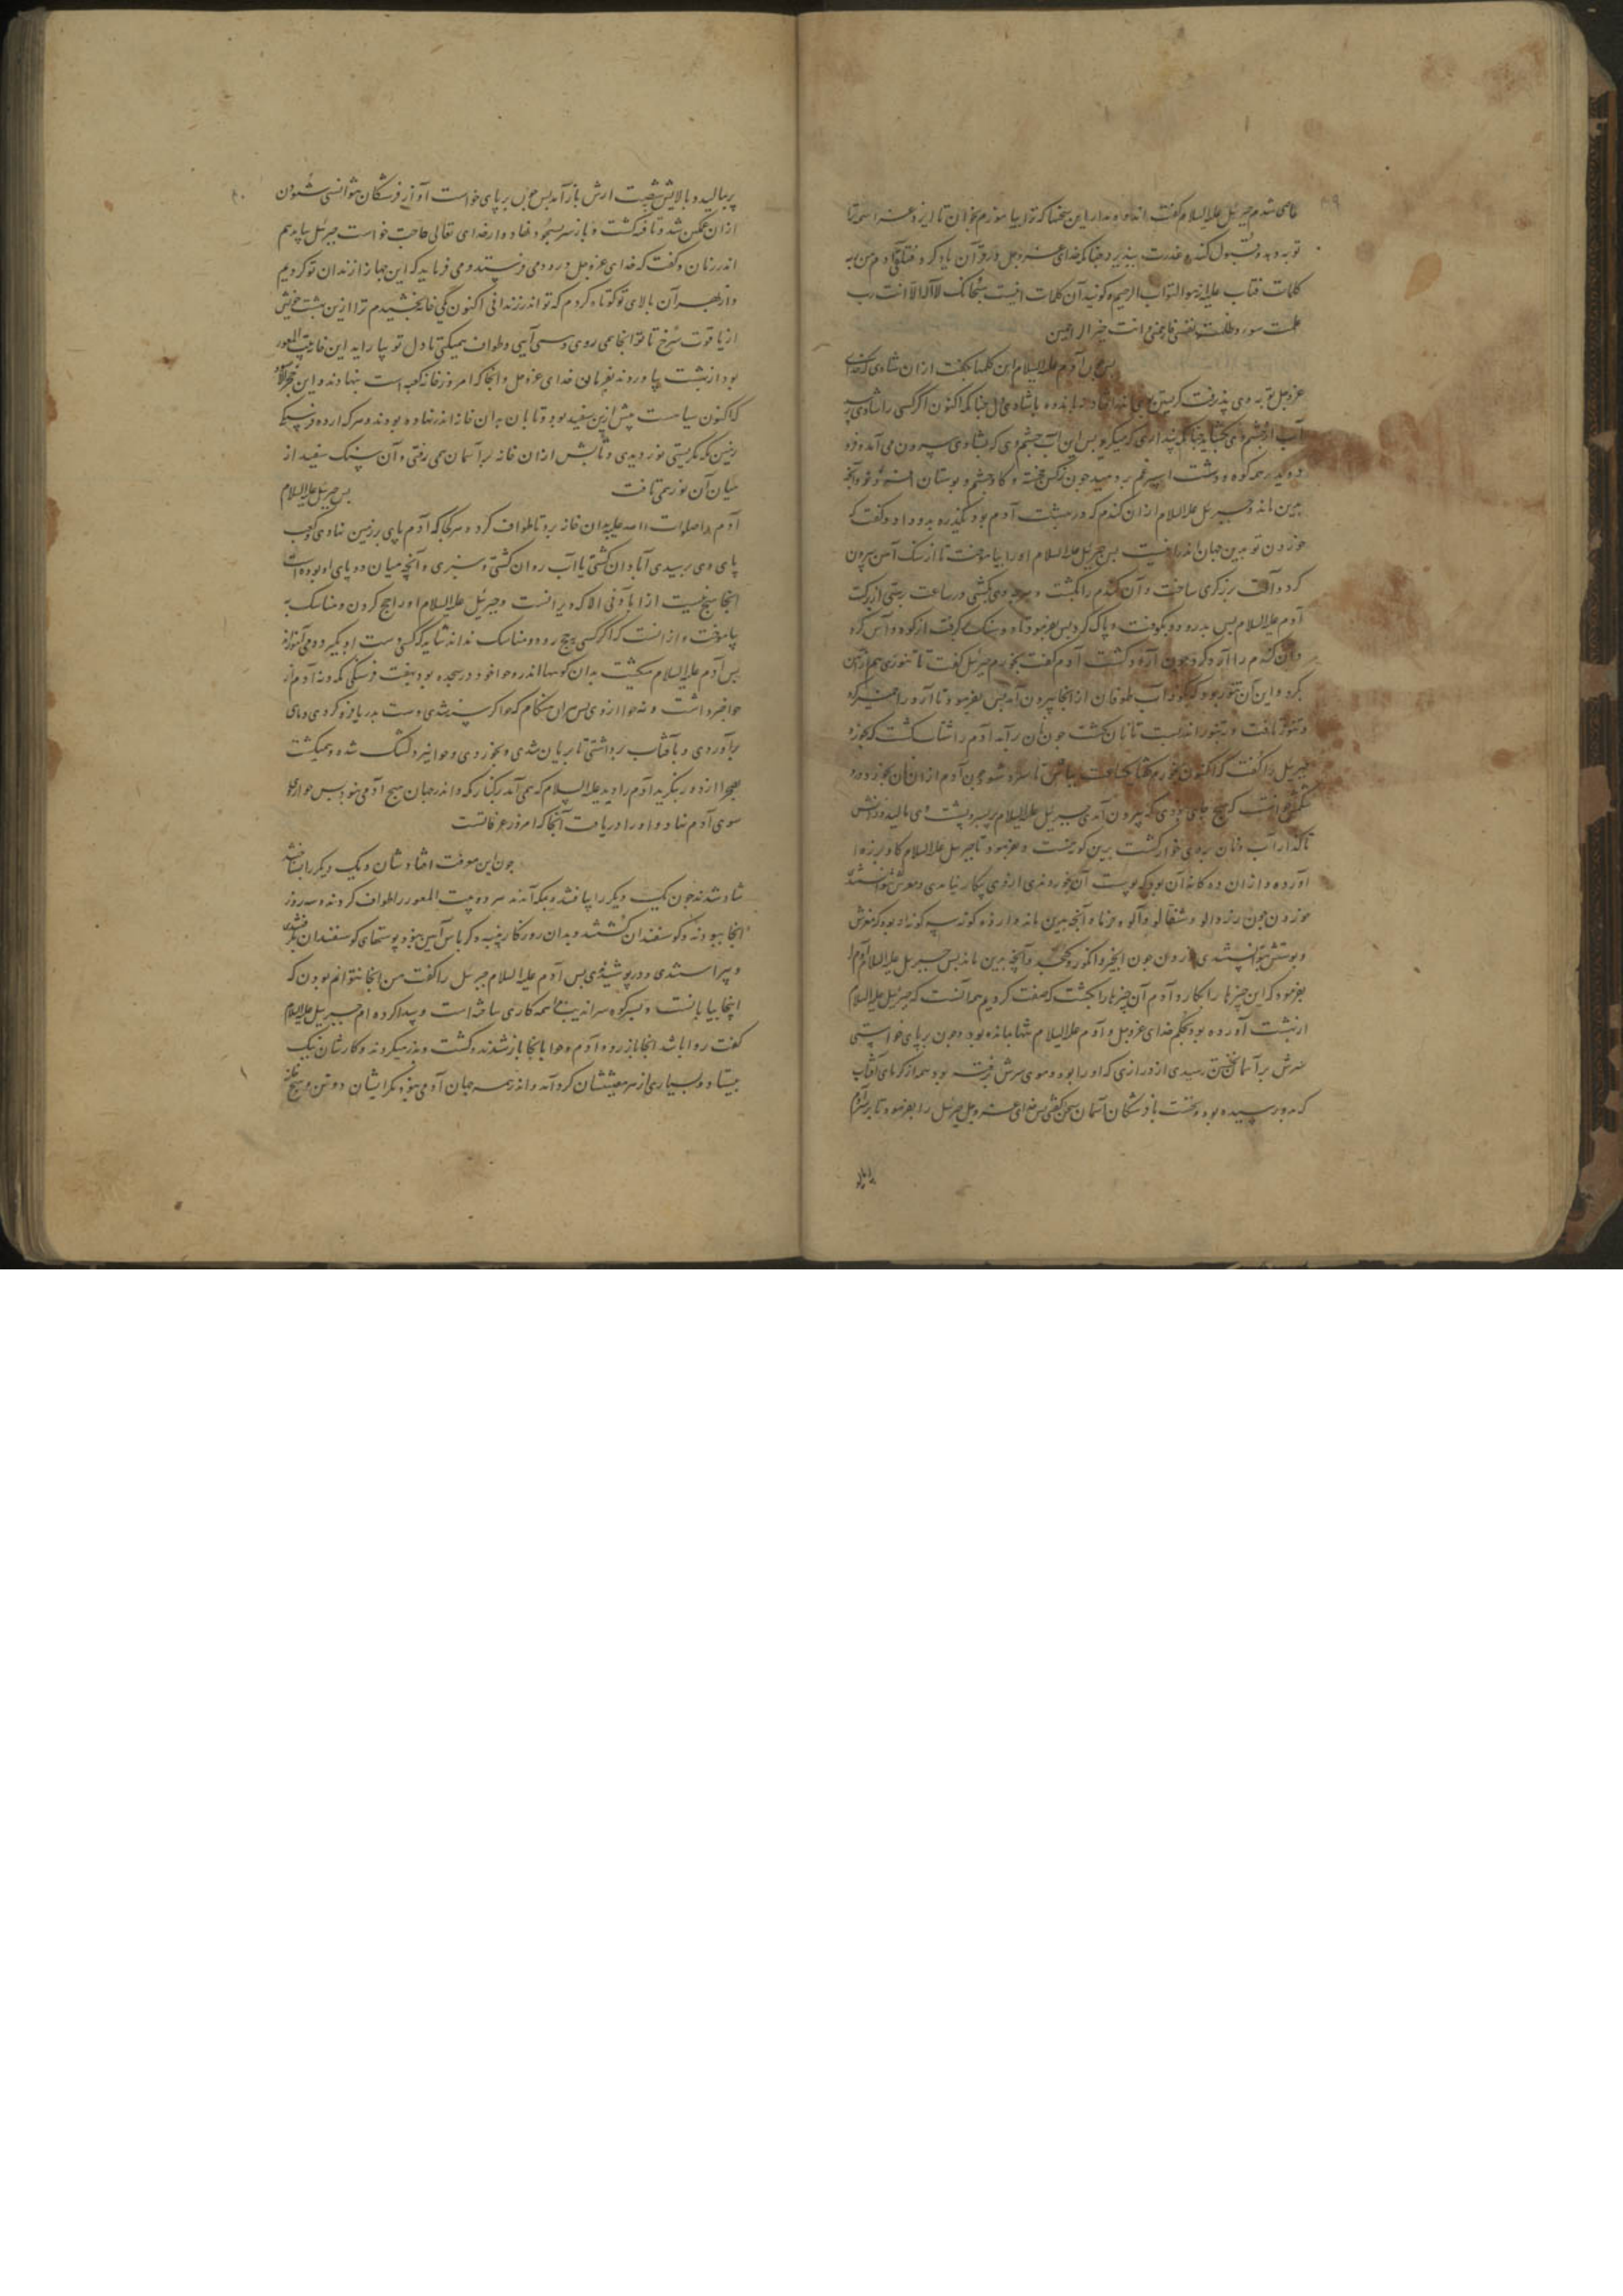 عاصی شدم جبرئیل علیه السلام گفت اندوه مدار این سخنها که ترا بیاموزم بخوان تا ایزد عز اسمه ترا
توبه دهد و قبول کند و عذرت بپذیرد چنانکه خدای عز وجل در قرآن یاد کرد فتلقی آدم من ربه
کلمات فتاب علیه انه هو التواب الرحیم و گویند آن کلمات اینست سبحانک لا اله الا انت رب
عملت سوء و ظلمت نفسی فارحمنی وانت خیر الراحمین
پس چون آدم علیه السلام این کلمها بگفت از آن شادی که خدای
عز وجل توبه وی پذرفت گریستن بر وی
آب از چشم وی بگشاید چنانکه پنداری که میگرید پس این آب چشم وی که بشادی بیرون می آمد و فرو
می دوید بر همه کوه و دشت اسپرغم بردمید چون نرگس و بنفشه و گاوچشم و بوستان افروز و آنچه
بدین ماند و جبرئیل علیه السلام از آن گندم که در بهشت آدم بود بگندره بدو داد و گفت که
خوردن تو بدین جهان اندر اینست پس جبرئیل علیه السلام او را بیاموخت تا از سنگ آهن بیرون
کرد و آلت برزگری ساخت و آن گندم را بکشت و هرچه وی بکشتی در ساعت رستی از برکت
آدم علیه السلام پس بدرود و بکوفت و پاک کرد پس بفرمود تا دو سنگ گرفت از کوه و آس کرد
و آن گندم را آرد کرد چون آرد گشت آدم گفت بخورم جبرئیل گفت تا تنوری هم از آهن
بکرد و این آن تنور بود که گویند آب طوفان از آنجا بیرون آمد پس بفرمود تا آرد را خمیر کرد
و تنور بتافت و به تنور اندر بست تا نان گشت چون نان برآمد آدم را شتاب گشت که بخورد
جبرئیل را گفت که اکنون بخورم گفتا یکساعت بباش تا سرد شود چون آدم از آن نان بخورد درد
شکمش خاست که هیچ جای نبودی که بیرون آمدی جبرئیل علیه السلام پر بپشت وی مالید و راهش
تا گذار آب و نان بر وی خوار گشت برین گونه که هست و بفرمود تا جبرئیل علیه السلام گاو نر و ماده
آورد و از آن ده گانه آن بود که پوست آن خوردندی از وی بکار نیامدی و مغزش توانستند
خوردن چون زردالو و شفتالو و آلو و خرما و آنچه بدین ماند و از ده گونه سه گونه او بود که مغزش
و پوستش توانستندی خوردن چون انجیر و انگور و کنجد و آنچه بدین ماند پس جبرئیل علیه السلام آدم را
بفرمود که این چیزها را بکار و آدم آن چیزها را بکشت که صفت کردیم همه آنست که جبرئیل علیه السلام
از بهشت آورده بود بحکم خدای عز وجل و آدم علیه السلام تنها مانده بود و چون بر پای خواستی
سرش بر آسمان نخستین رسیدی از درازی که او را بود و موی سرش برفته بود همه از گرمای آفتاب
که بدو رسیده بود و نخست با فرشتگان آسمان سخن گفتی پس خدای عز وجل جبرئیل را بفرمود تا بر سر آدم
پر بمالید و بالایش شصت ارش باز آمد پس چون بر پای خواست آواز فرشتگان نتوانستی شنودن
از آن غمگین شد و تافته گشت و باز سر بسجود نهاد و از خدای تعالی حاجت خواست جبرئیل بیامد هم
اندر زمان و گفت که خدای عز وجل درود می فرستد و می فرماید که این جهان را زندان تو کردیم
و از بهر آن بالای تو کوتاه کردم که تو اندر زندانی اکنون یکی خانه بخشیدم ترا ازین بهشت خویش
از یاقوت سرخ تا تو آنجا می روی و می آیی و طواف همیکنی تا دل تو بیارامد این خانه بیت المعمور
بود از بهشت بیاوردند بفرمان خدای عز وجل و آنجا که امروز خانه کعبه است بنهادند و این حجر الاسود
که اکنون سیاهست پیش ازین سفید بود و تابان بدان خانه اندر نهاده بودند و هر که از ده فرسنگ
زمین که نگریستی نور دیدی و تابش از آن خانه بر آسمان همی رفتی و آن سنگ سفید از
میان آن نور همی تافت پس جبرئیل علیه السلام
آدم را صلوات الله علیه بدان خانه برد تا طواف کرد و هر کجا که آدم پای بر زمین نهادی و کعب
پای وی برسیدی آبادان گشتی یا آب روان گشتی و سبزی و آنچه میان دو پای او بوده است
آنجا هیچ نیست از آبادانی الا که ویرانست و جبرئیل علیه السلام او را حج کردن و مناسک
بیاموخت و از آنست که اگر کسی بحج رود و مناسک نداند شاید که کسی دست او بگیرد و می آموزاند
پس آدم علیه السلام میگشت بدان کوهها اندر و حوا خود در سجده بود بهفت فرسنگی مکه و نه آدم از
حوا خبر داشت و نه حوا از وی پس هر آن هنگام که حوا گرسنه شدی دست بدریا فرو کردی و ماهی
برآوردی و بآفتاب برداشتی تا بریان شدی و بخوردی و حوا نیز دلتنگ شده و همیگشت
بصحرا از دور بنگرید آدم را دید علیه السلام که همی آمد بر کنار مکه و اندر جهان هیچ آدمی نبود پس حوا روی
سوی آدم نهاد و او را دریافت آنجا که امروز عرفاتست
چون این معرفت افتادشان و یک دیگر را بشناختند
شاد شدند چون یک دیگر را بیافتند و بمکه آمدند هر دو و بیت المعمور را طواف کردند و سه روز
آنجا ببودند و گوسفندان کشتند و بدان روزگار پنبه و کرباس آیین نبود پوستهای گوسفندان بگرفتندی
و پیراستندی و درپوشیدندی پس آدم علیه السلام جبرئیل را گفت من اینجا نتوانم بودن که
اینجا بیابانست و بسر کوه سراندیب مرا همه کاری ساخته است و پیدا کرده ام جبرئیل علیه السلام
گفت روا باشد آنجا باز رو و آدم و حوا بآنجا باز شدند و کشت و بذر میکردند و کارشان نیک
بیستاد و بسیاری از هر معیشتشان گرد آمد و اندر همه جهان آدمی نبود مگر ایشان دو تن و هیچ